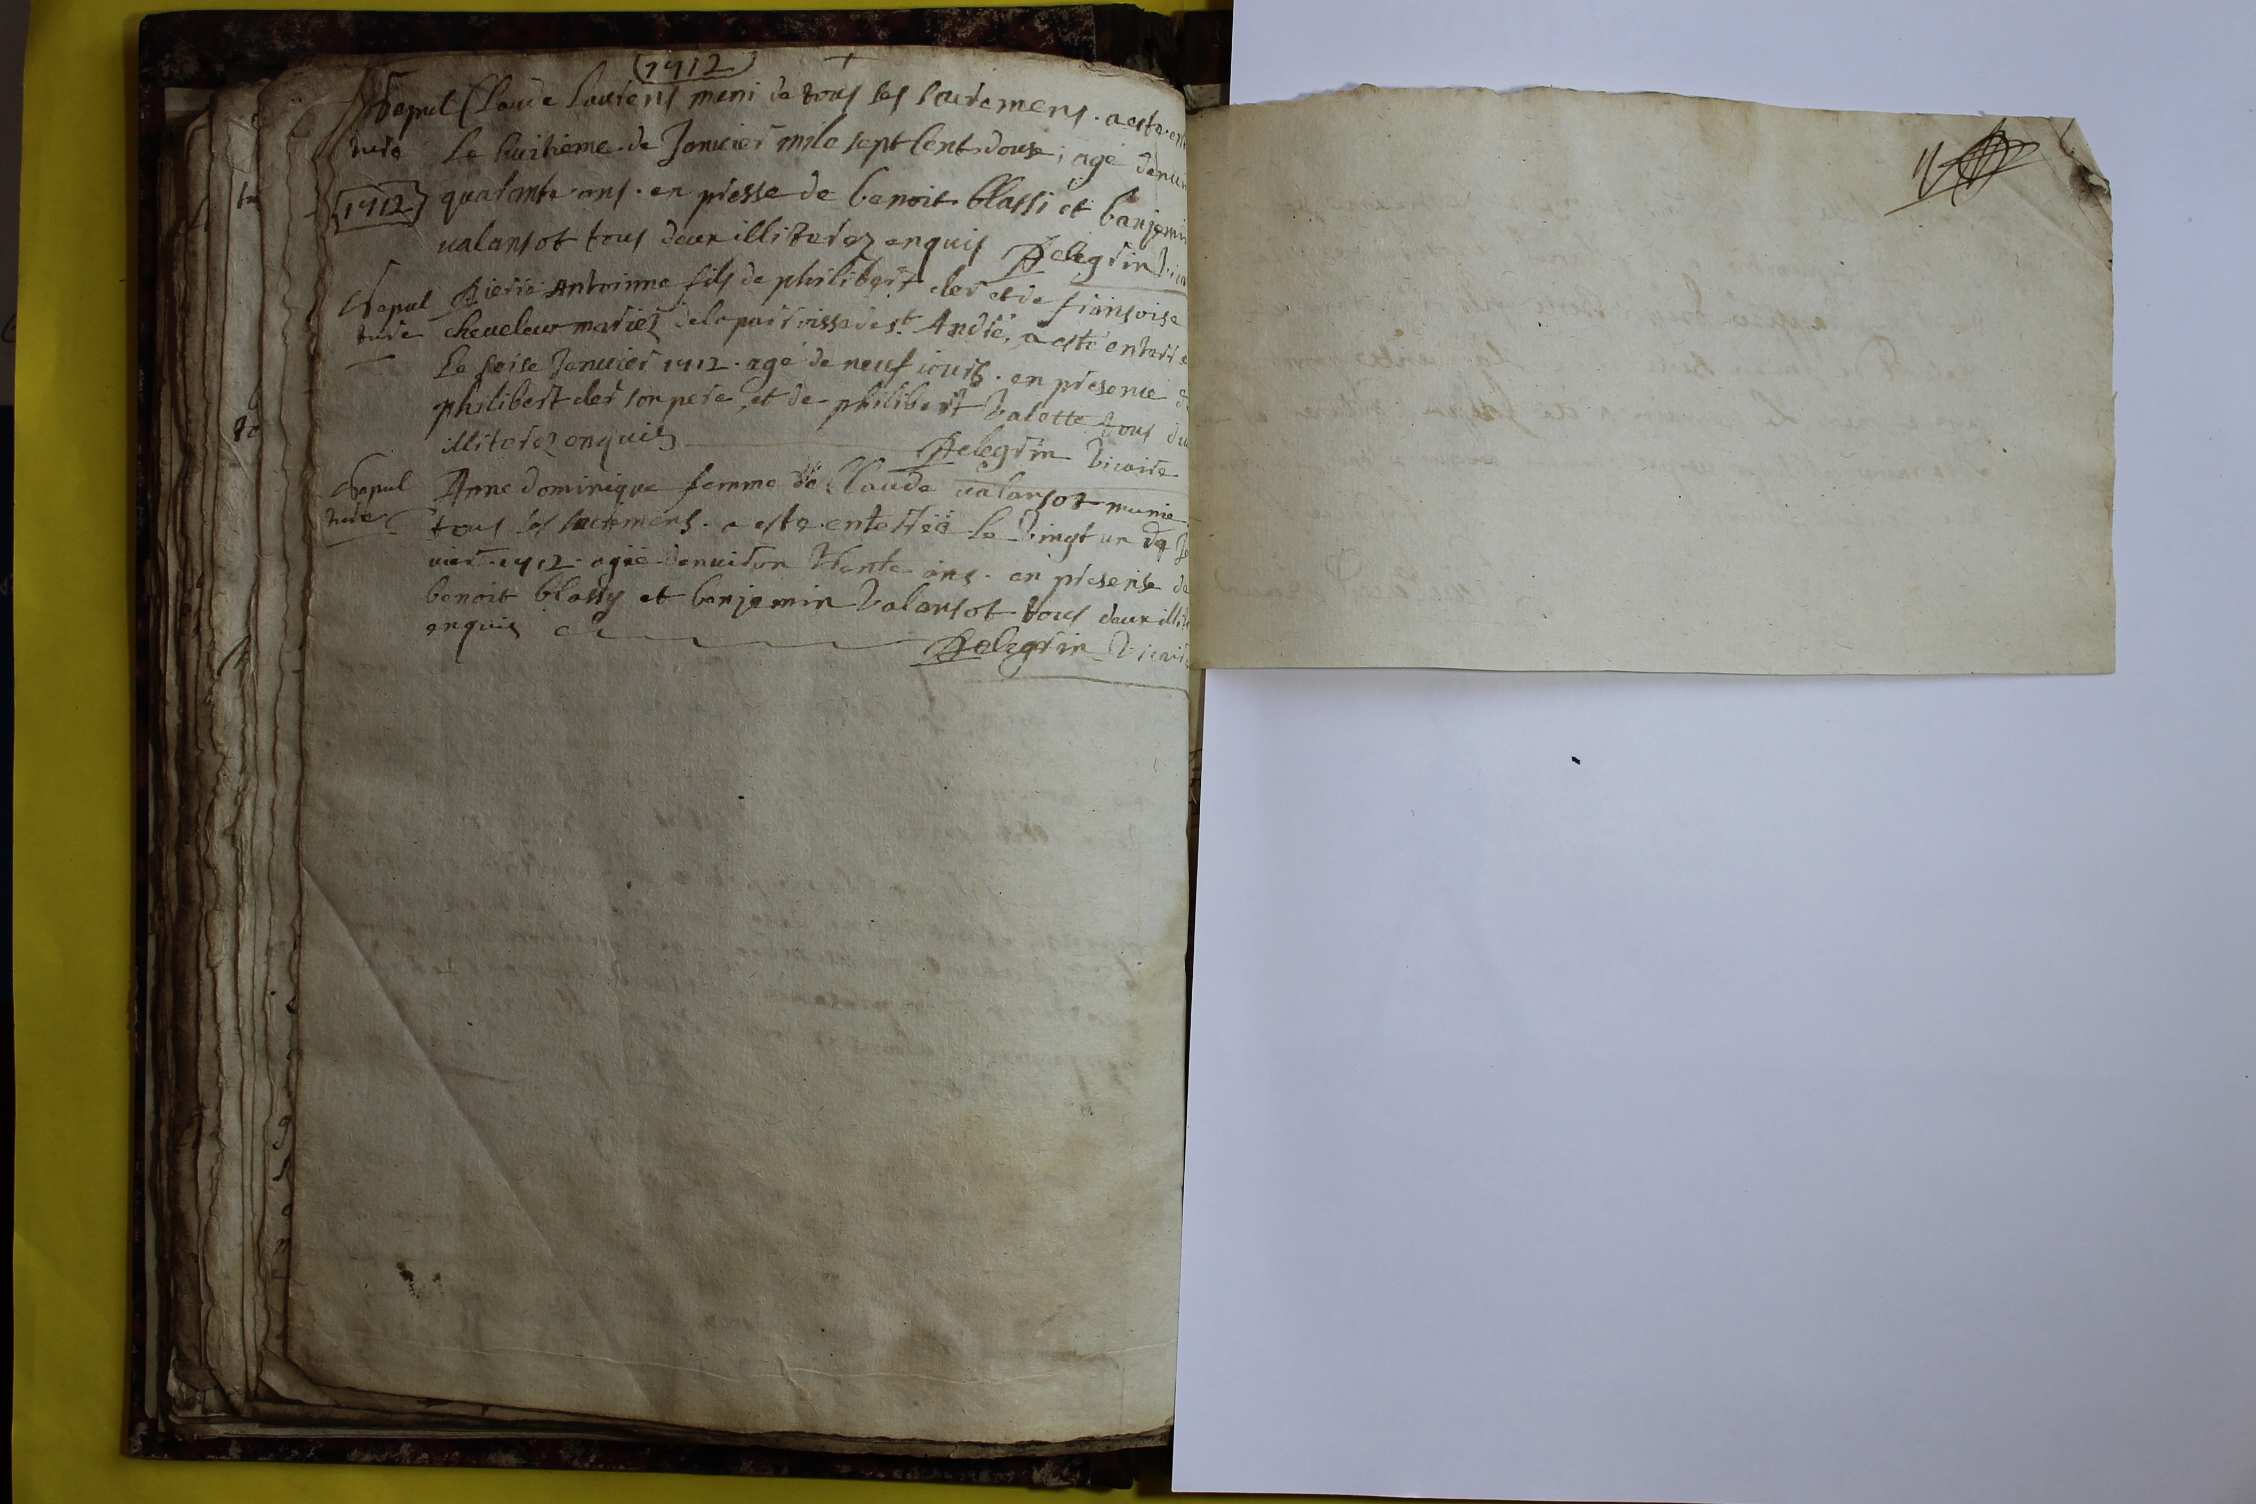 1712
Sepul Claude Laurens muni de tous les sacremens. a esté en
ture le huitieme de Janvier mile sept Cent douse; agé denvir
1712 quarante ans. en presse de benoit blassi et benjemin
valansot tous deux illiterez enquis Pelegrin Vica
Sepul Pierre Antoinne fils de philibert cler et de fransoise
ture cheveleur mariez de la parroisse de st André, a esté enterré
Le seise Janvier 1712. agé de neuf jours. en presence d
philibert cler son pere, et de philibert Valette tous du
illiterez enquis Pelegrin Vicaire
Sepul Anne dominique femme de Claude valansot munie
ture tous les sacremens. a esté enterrée le Vingt un de Ja
vier 1712. agée denviron trente ans. en presense de
benoit blassy et benjemin Valansot tous deux illite
enquis Pelegrin Vicaire